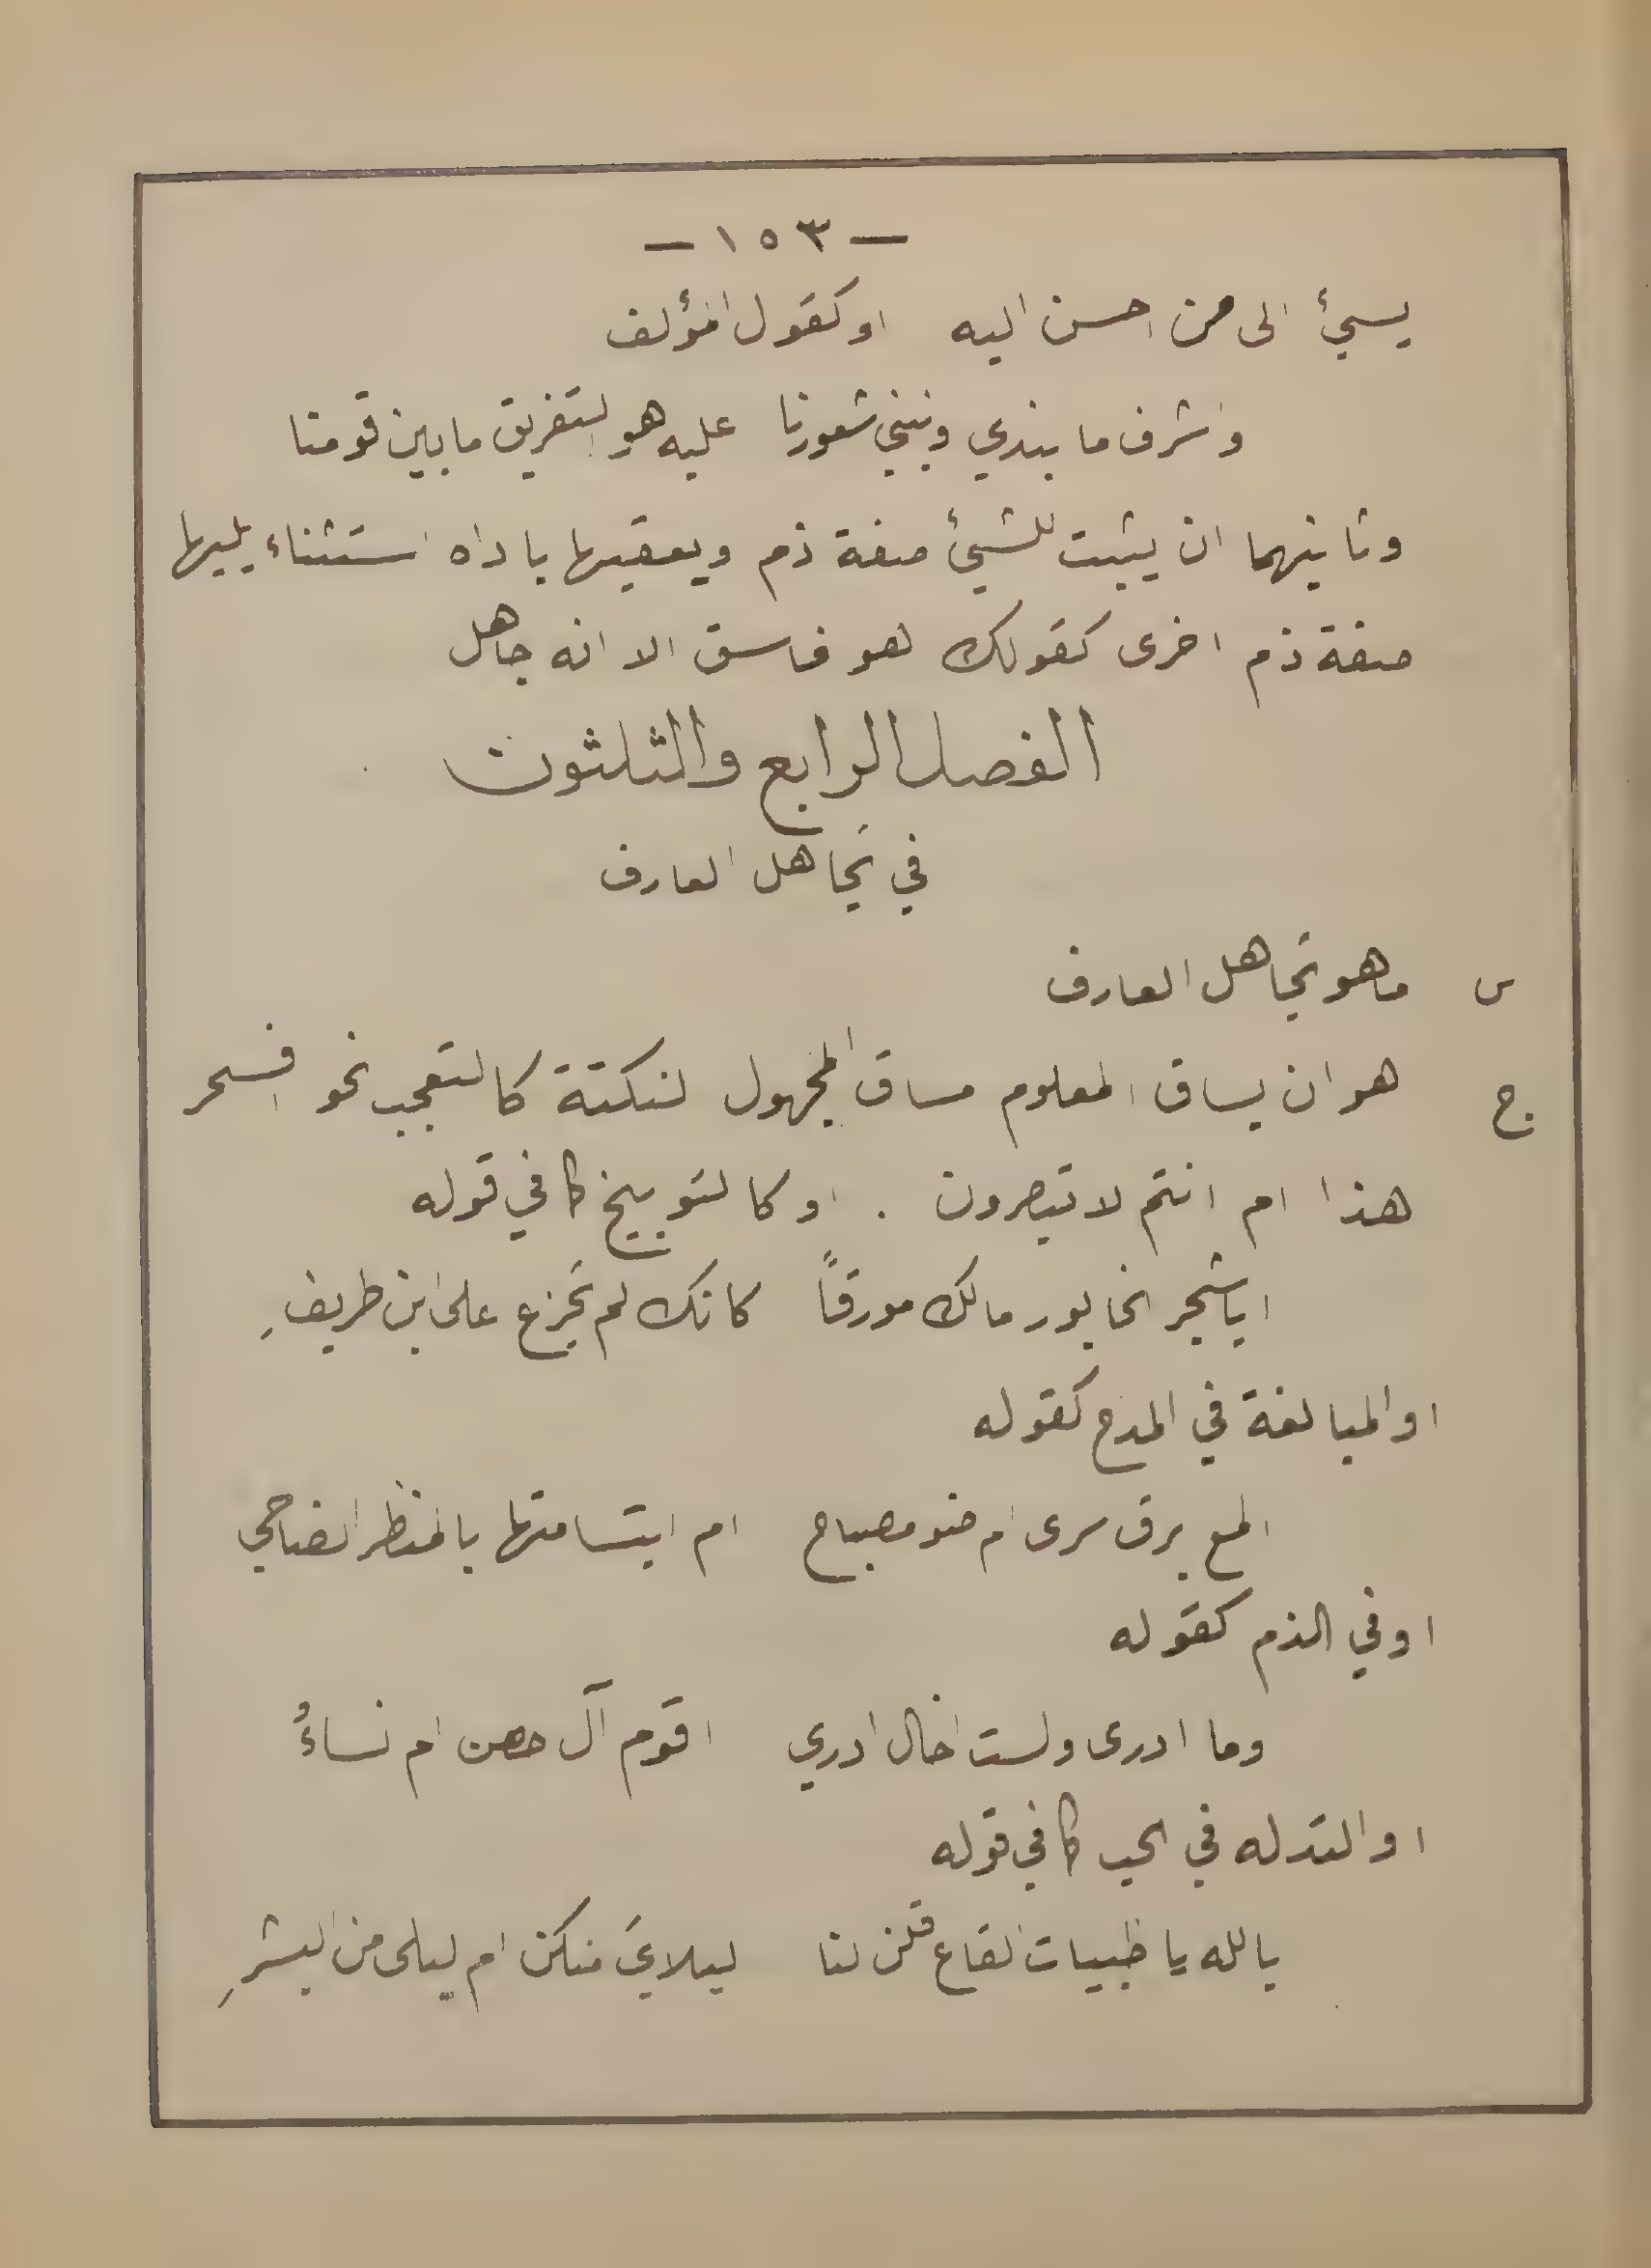 — ١٥٣ —
يسئ الى من احسن اليه اوكقول المؤلف
واشرف ما يبدي ويبني شعورنا عليه هو التفريق ما بين قومنا
وثانيهما ان يثبت للشئ صفة ذم ويعقيها باداه استثناء يليها
صفة ذم اخرى كقولك هو فاسق الا انه جاهل
الفصل الرابع والثلثون
في تجاهل العارف
س ما هو تجاهل العارف
ج هو ان يساق المعلوم مساق المجهول لنكتة كالتعجب نحو افسحر
هذا ام انتم لا تبصرون . او كالتوبيخ كما في قوله
ايا شجر الخابور مالك مورقاً كانك لم تجزع على ابن طريفِ
او المبالغة في المدح كقوله
المع برق سرى ام ضو مصباح ام ابتسامتها بالمنظر الضاحي
او في الذم كقوله
وما ادرى ولست اخال ادري اقوم آل حصن ام نساءُ
او التدله في الحب كما في قوله
بالله يا ظبيات القاع قلن لنا ليلايَ منكن ام ليلى من البشرِ